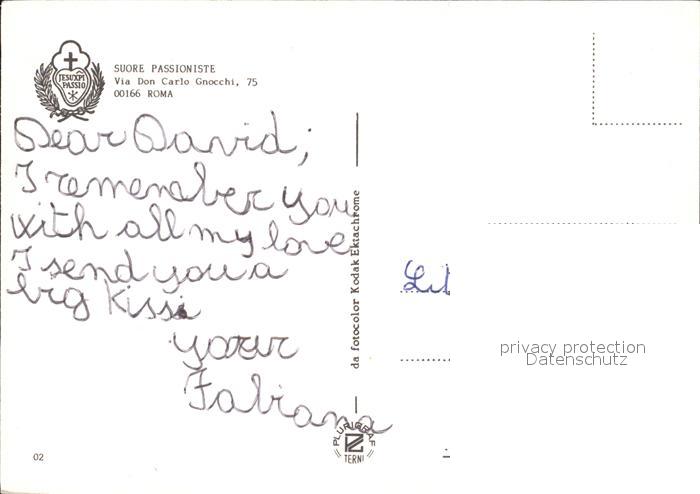 SUORE PASSIONISTE
Via Don Carlo Gnocchi, 75
00166 ROMA
JESUXPI
PASSIO
Dear David;
I remember you
with all my love
I send you a
big kiss
your
Fabiana
da fotocolor Kodak Ektachrome
PLURIGRAF
TERNI
privacy protection
Datenschutz
02